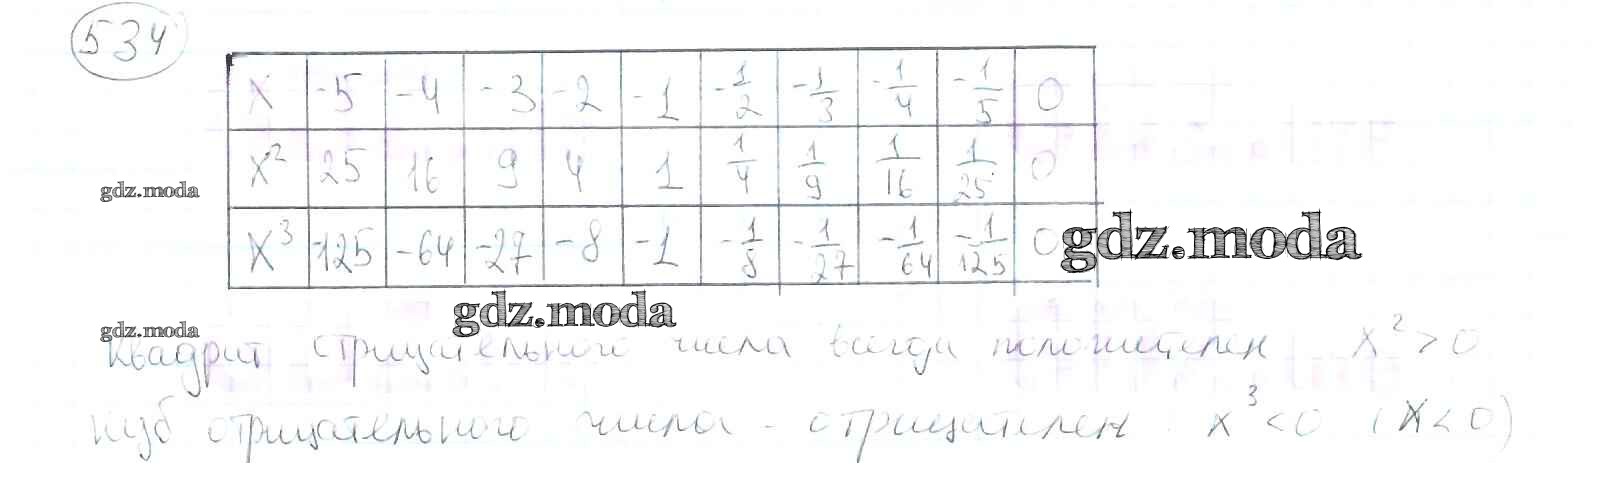 534
x -5 -4 -3 -2 -1 -1/2 -1/3 -1/4 -1/5 0
x² 25 16 9 4 1 1/4 1/9 1/16 1/25 0
gdz.moda
x³ -125 -64 -27 -8 -1 -1/8 -1/27 -1/64 -1/125 0
gdz.moda
gdz.moda
gdz.moda
Квадрат отрицательного числа всегда положителен x² > 0
Куб отрицательного числа - отрицателен. x³ < 0 (x < 0)